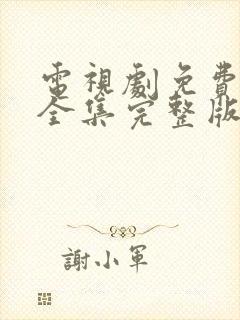 電視劇免費
全集完整版
謝小軍